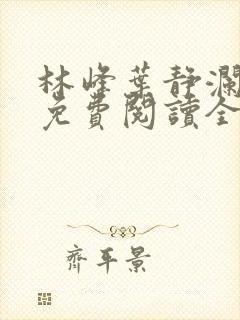 林峰葉靜瀾
免費閱讀全
齊平景